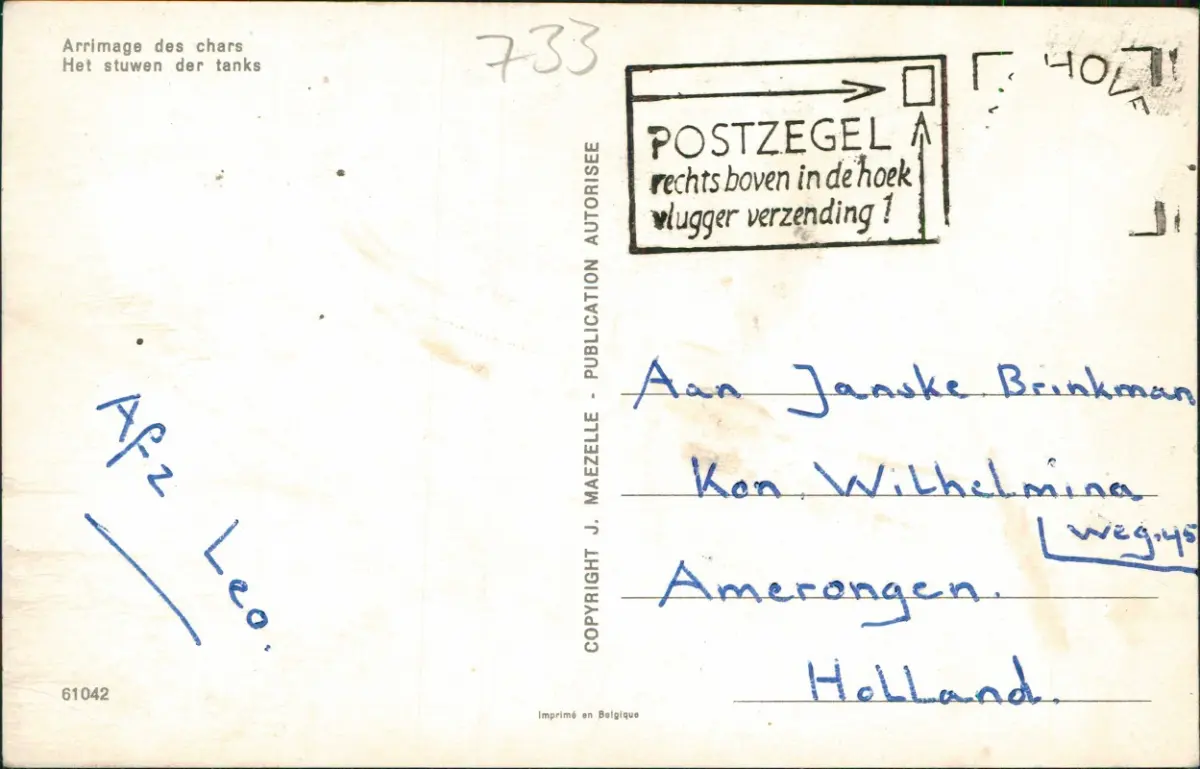 Arrimage des chars
Het stuwen der tanks
733
POSTZEGEL
rechts boven in de hoek
vlugger verzending!
HOVE
COPYRIGHT J. MAEZELLE - PUBLICATION AUTORISEE
Afz
Leo.
Aan Janske Brinkman
Kon. Wilhelmina
weg.45
Amerongen.
Holland.
61042
Imprimé en Belgique